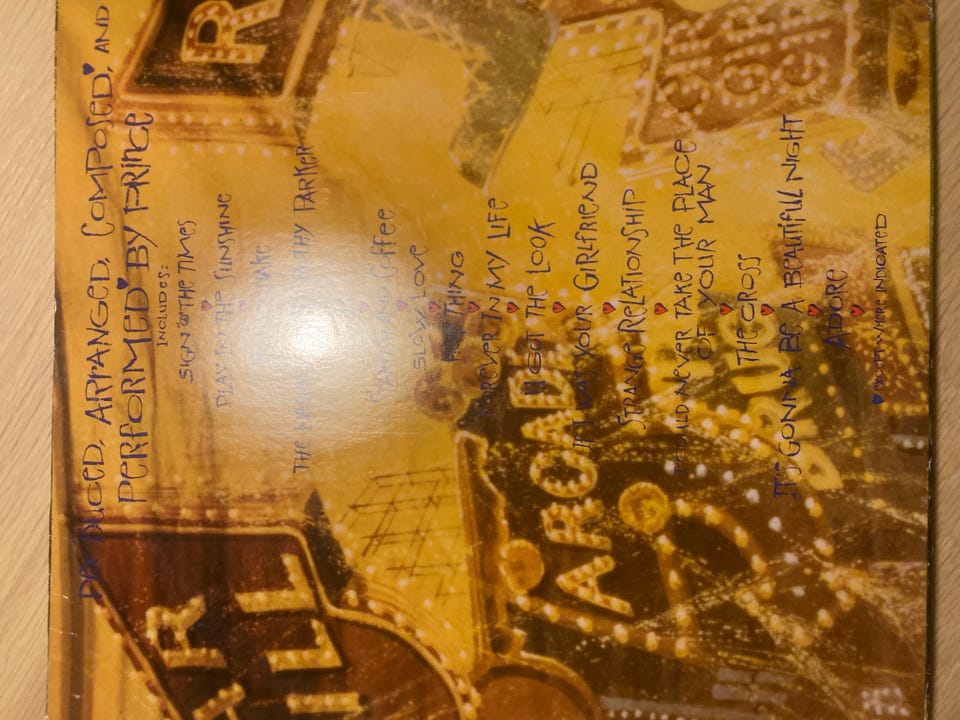 PRODUCED, ARRANGED, COMPOSED,♥ AND
PERFORMED♥ BY PRINCE
INCLUDES:
SIGN "☮" THE TIMES
PLAY IN THE SUNSHINE
THE PARKER
COFFEE
SLOW LOVE
HOT THING
FOREVER IN MY LIFE
U GOT THE LOOK
IF I WAS YOUR GIRLFRIEND
STRANGE RELATIONSHIP
I COULD NEVER TAKE THE PLACE
OF YOUR MAN
THE CROSS
IT'S GONNA BE A BEAUTIFUL NIGHT
ADORE
♥ EXCEPT WHERE INDICATED
ARCADE
DRUGS